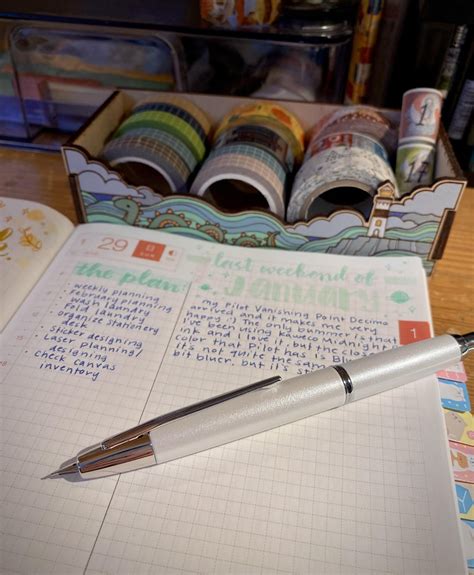 29
the plan:
weekly planning
February planning
wash laundry
fold laundry
organize stationery
desk
sticker designing
laser planning/
designing
check canvas
inventory
last weekend of
JANUARY
my Pilot Vanishing Point Decimo
arrived and it makes me very
happy. :) The only bummer is that
I've been using Kaweco Midnight
and I love it but the closest
color that Pilot has is Blue
it's not quite the same
bit bluer. but it's
1